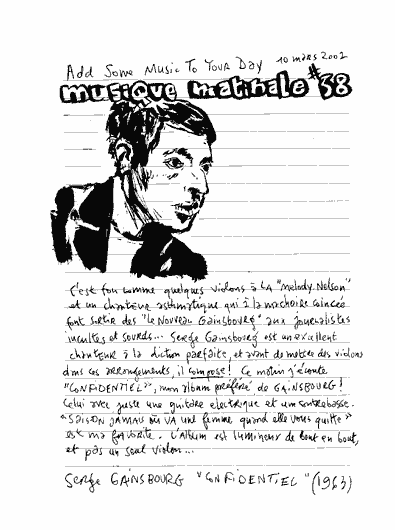 Add Some Music To Your Day 10 mars 2002
musique matinale #38
C'est fou comme quelques violons à la "Melody Nelson"
et un chanteur asthmatique qui à la machoire coincée
font sortir des "le Nouveau Gainsbourg" aux journalistes
incultes et sourds... Serge Gainsbourg est un excellent
chanteur à la diction parfaite, et avant de mettre des violons
dans ces arrangements, il compose! Ce matin j'écoute
"CONFIDENTIEL", mon album préféré de GAINSBOURG!
Celui avec juste une guitare electrique et une contrebasse.
"SAISON JAMAIS OU VA une femme quand elle vous quitte"
est ma favorite. L'album est lumineux de bout en bout,
et pas un seul violon...
Serge GAINSBOURG "CONFIDENTIEL" (1963)